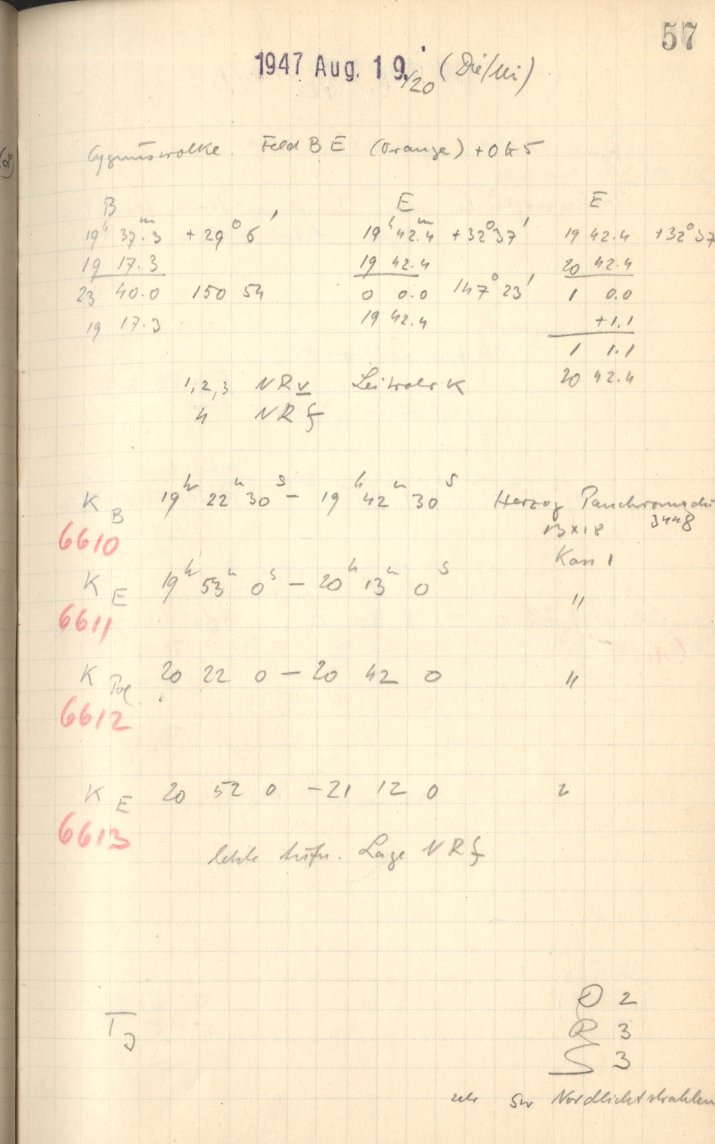 57
1947 Aug. 19./20 (Die/Mi)
Cygnuswolke Feld B E (Orange) + OG5
B E E
19h 37m.3 +29° 6' 19h 42m.4 +32° 37' 19 42.4 +32° 37
19 17.3 19 42.4 20 42.4
23 40.0 150 54 0 0.0 147° 23' 1 0.0
19 17.3 19 42.4 +1.1
1 1.1
20 42.4
1, 2, 3 NRv Leitrohr K
4 NRf
K B 19h 22m 30s – 19h 42m 30s Herzog
6610 13×18 3448
Kass 1
K E 19h 53m 0s – 20h 13m 0s "
6611
K Pol 20 22 0 – 20 42 0 "
6612
K E 20 52 0 – 21 12 0 "
6613
letzte Aufn. Lage NRf
TJ
O 2
R 3
S 3
Nordlichtstrahlen